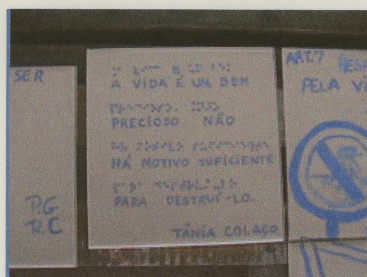 SER
P.G
R.C
A VIDA É UM BEM
PRECIOSO NÃO
HÁ MOTIVO SUFICIENTE
PARA DESTRUÍ-LO.
TÂNIA COLAÇO
ART.7
PELA VI